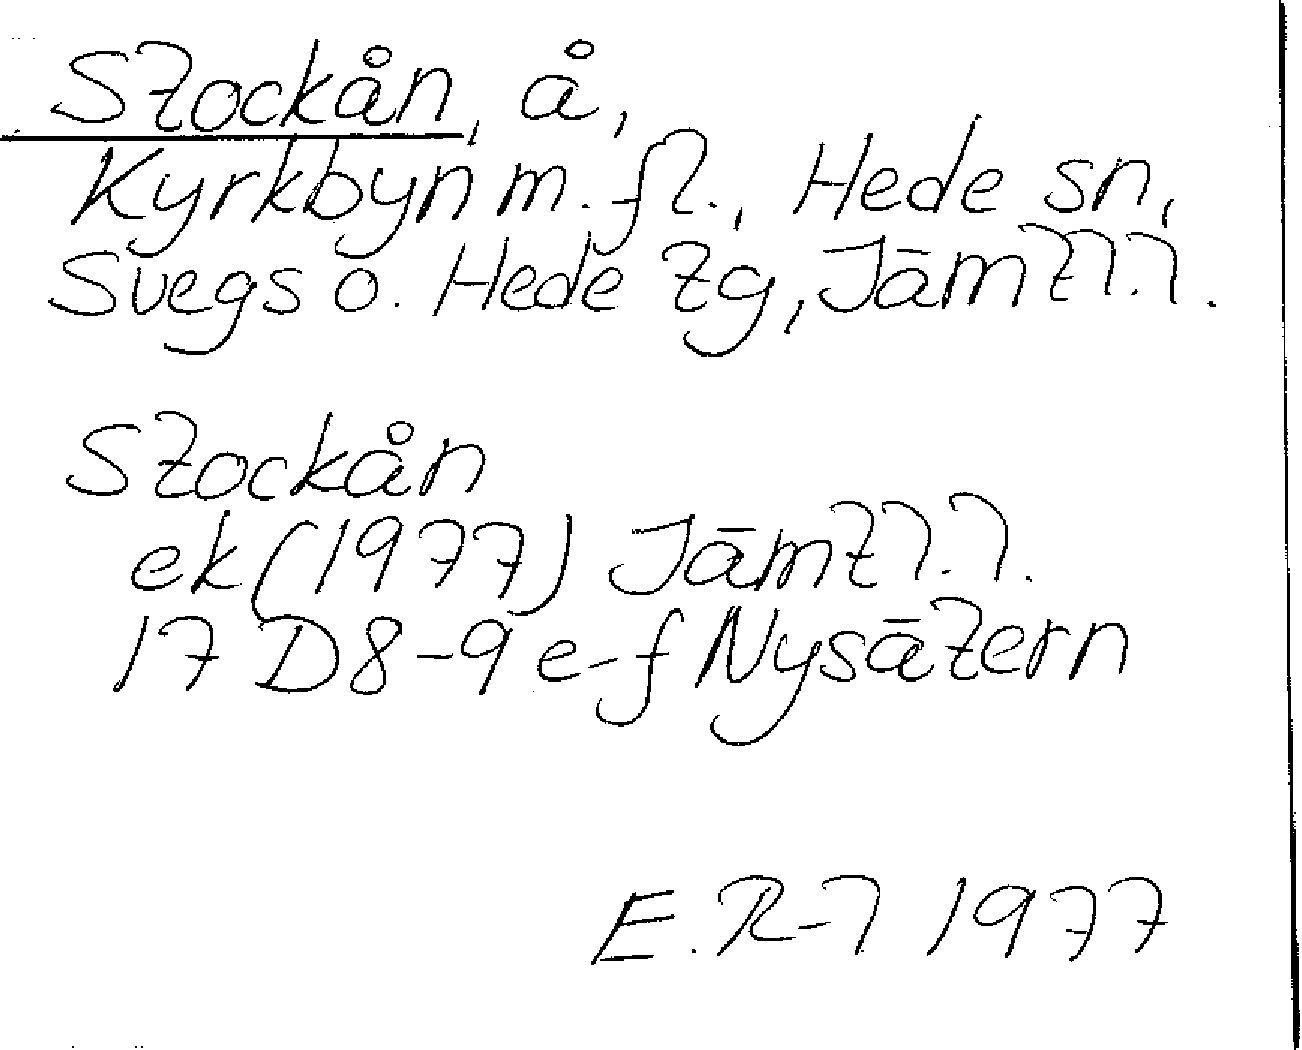 Stockån, å,
Kyrkbyn m.fl., Hede sn,
Svegs o. Hede tg, Jämtl.l.
Stockån
ek (1977) Jämtl.l.
17 D 8-9 e-f Nysätern
E. R-l 1977